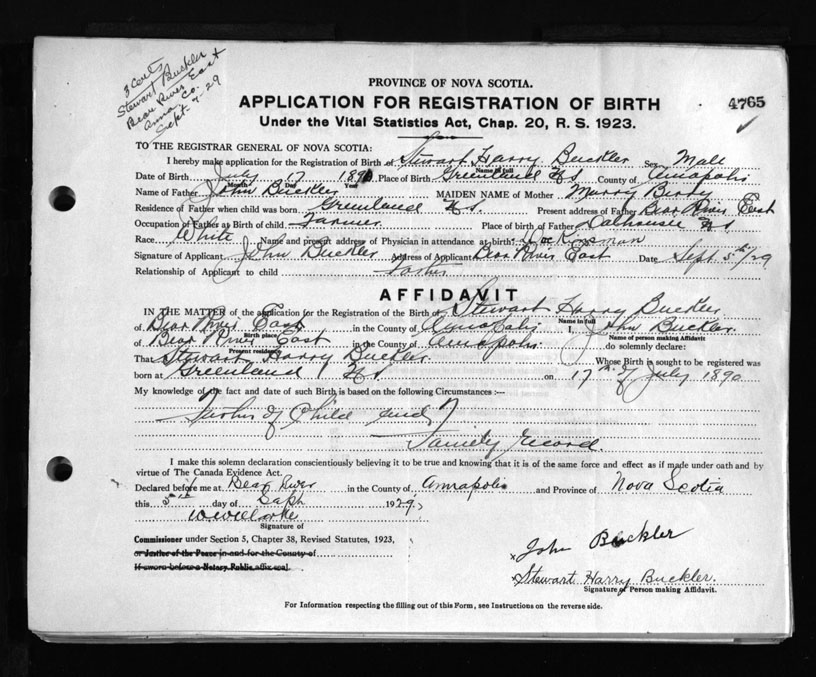 Stewart Buckler
Bear River East
Anna. Co.
Sept. 7. 29
PROVINCE OF NOVA SCOTIA.
APPLICATION FOR REGISTRATION OF BIRTH
4765
Under the Vital Statistics Act, Chap. 20, R. S. 1923.
TO THE REGISTRAR GENERAL OF NOVA SCOTIA:
I hereby make application for the Registration of Birth of Stewart Harry Buckler Sex Male
Name in full
Date of Birth July 17 1890 Place of Birth Greenland N S. County of Annapolis
Month Day Year
Name of Father John Buckler MAIDEN NAME of Mother
Residence of Father when child was born Greenland N S. Present address of Father Bear River East
Occupation of Father at Birth of child Farmer Place of birth of Father Dalhousie N S
Race White Name and present address of Physician in attendance at birth
Signature of Applicant John Buckler Address of Applicant Bear River East Date Sept 5th/29
Relationship of Applicant to child Father
AFFIDAVIT
IN THE MATTER of the application for the Registration of the Birth of Stewart Harry Buckler
Name in full
of Bear River East in the County of Annapolis I, John Buckler
Birth place Name of person making Affidavit
of Bear River East in the County of Annapolis do solemnly declare:
Present residence
That Stewart Harry Buckler Whose Birth is sought to be registered was
born at Greenland N S. on 17th of July 1890
My knowledge of the fact and date of such Birth is based on the following Circumstances :—
Father of Child and
Family record.
I make this solemn declaration conscientiously believing it to be true and knowing that it is of the same force and effect as if made under oath and by
virtue of The Canada Evidence Act.
Declared before me at Bear River in the County of Annapolis and Province of Nova Scotia
this 5th day of Sept 1929
Signature of
Commissioner under Section 5, Chapter 38, Revised Statutes, 1923,
or Justice of the Peace in and for the County of
If sworn before a Notary Public, affix seal.
x John Buckler
x Stewart Harry Buckler.
Signature of Person making Affidavit.
For Information respecting the filling out of this Form, see Instructions on the reverse side.